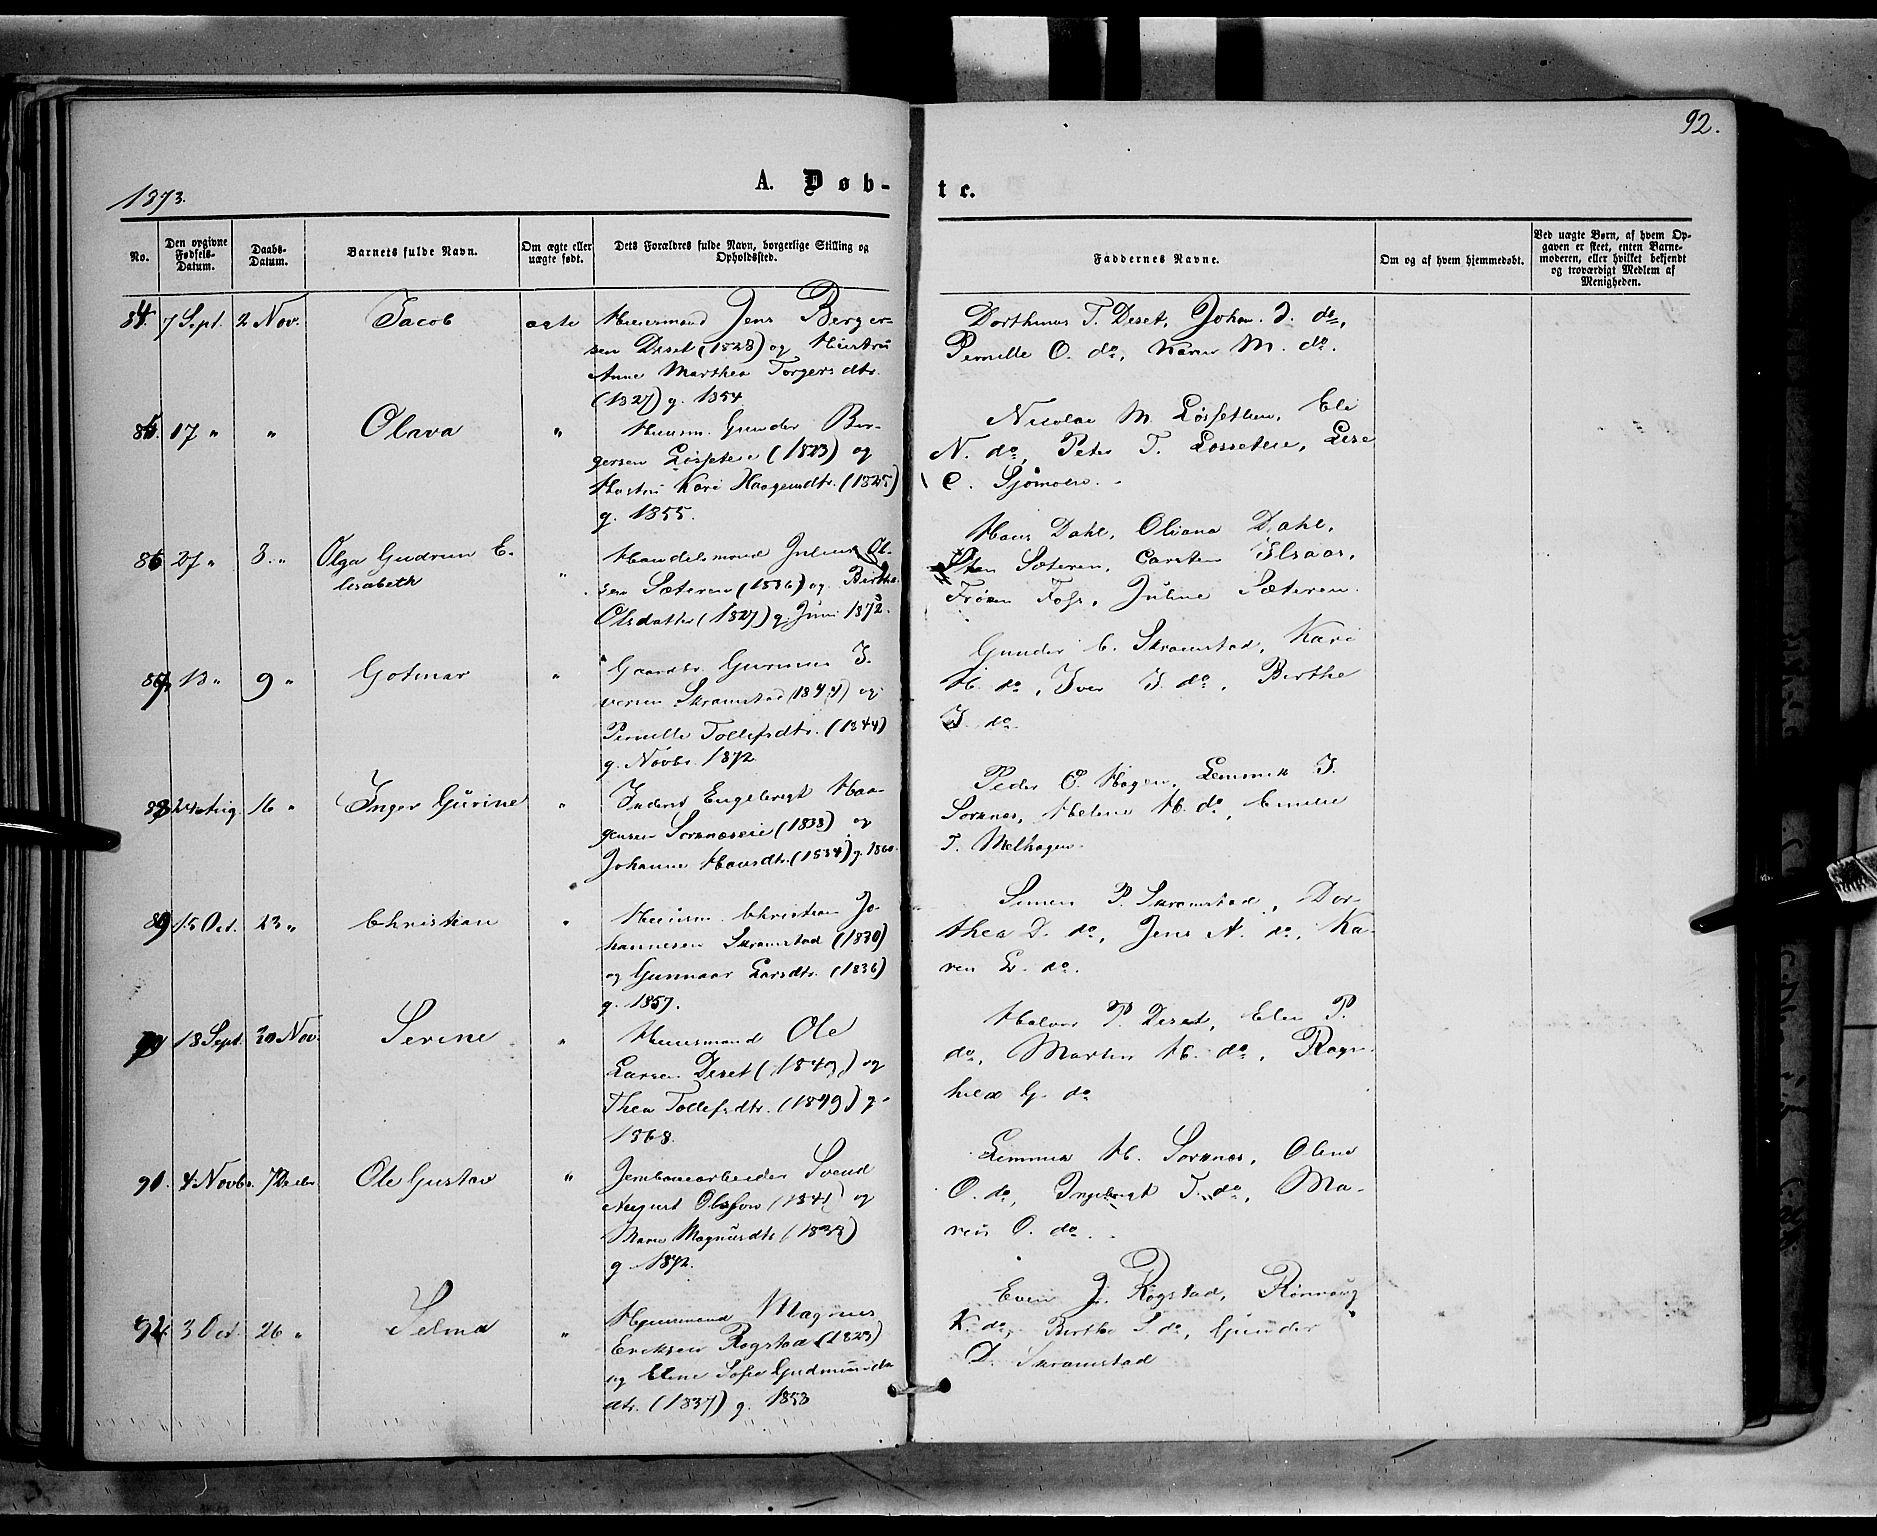 92.
1873.
A. Døb-
te.
No.
Den opgivne Fødsels-Datum.
Daabs-Datum.
Barnets fulde Navn.
Om ægte eller uægte født.
Dets Forældres fulde Navn, borgerlige Stilling og Opholdssted.
Faddernes Navne.
Om og af hvem hjemmedøbt.
Ved uægte Børn, af hvem Opgaven er skeet, enten Barnemoderen, eller hvilket bekjendt og troværdigt Medlem af Menigheden.
84. 7 Sept. 2 Nov. Jacob ægte Huusmand Jens Berger-
sen Deset (1828) og Hustru
Anne Marthea Torgersdtr.
(1827) g. 1854
Dorthinus T. Deset, Johan J. do,
Pernille O. do, Karen M. do.
85. 17 " " Olava " Huusm. Gunder Bir-
gersen Løsseteie (1823) og
Hustru Kari Haagensdtr. (1825)
g. 1855.
Nicolai M. Løsset, Eli
N. do, Peter T. Løsseteie, Lise
C. Sjømoen.
86 27 " 3. " Olga Gudrun E-
lisabeth " Handelsmand Julius Ol-
sen Sæteren (1836) og Birthe
Olsdatter (1827) g. Juni 1872.
Hans Dahl, Oliana Dahl,
Sæteren, Carsten
Frøken Foss, Juline Sæteren.
87 13 " 9 " Gotmar " Gaardbr. Gunnar I-
versen Skramstad (1844) og
Pernille Tollefsdtr. (1844)
g. Novbr. 1872
Gunder C. Skramstad, Kari
H. do, Iver I. do, Birthe
I. do.
88 24 Aug. 16 " Inger Gurine " Inderst Engebregt Haa-
gensen Sorknæseie (1838) og
Johanne Hansdtr. (1834) g. 1860.
Peder O. Hagen, Lemmik I.
Sorknes, Helene H. do, Emilie
T. Melhagen.
89 15 Oct. 23 " Christian " Huusm. Christian Jo-
hannesen Skramstad (1830)
og Gunnaar Larsdtr. (1836)
g. 1857.
Simen P. Skramstad, Dor-
thea D. do, Jens A. do, Ka-
ren L. do.
90 18 Sept. 30 Nov. Serine " Huusmand Ole
Larsen Deset (1849) og
Thea Tollefsdtr. (1849) g.
1868.
Halvor P. Deset, Eli P.
do, Martin H. do, Ragn-
hild G. do
91. 4 Novbr. 7 Decbr. Ole Gustav " Jernbanearbeider Svend
August Olsson (1841) og
Maria Magnusdtr. (1838)
g. 1872.
Lemmik H. Sorknes, Oline
O. do, Ingebrigt T. do, Ma-
ren O. do.
92. 3 Oct. 26 " Selma " Huusmand Magnus
Eriksen Rogstad (1823)
og Eline Sofie Gudmunds-
dtr. (1837) g. 1858
Even J. Rogstad, Rønnaug
K. do, Birthe S. do, Gunder
D. Skramstad